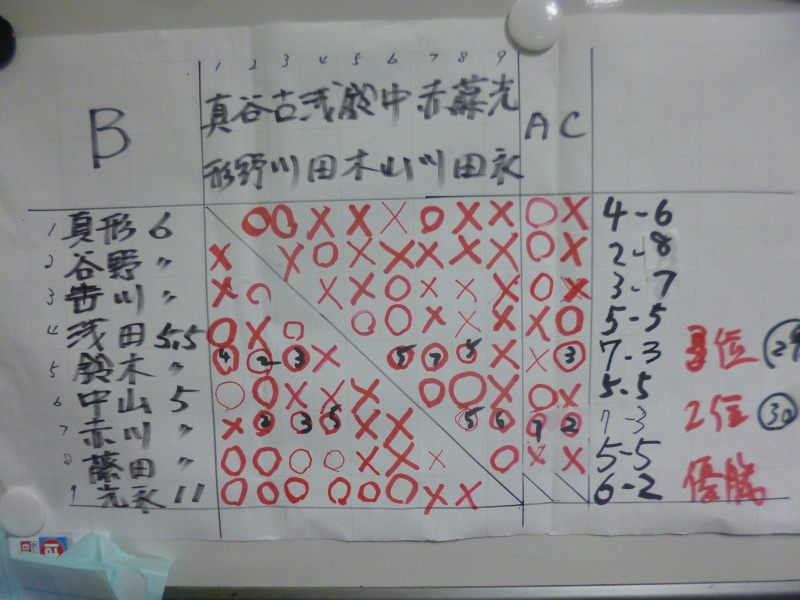 1 2 3 4 5 6 7 8 9
B 真形 谷野 古川 浅田 鈴木 中山 赤川 藤田 光永 A C
1 真形 6 ○ ○ X X X ○ X X ○ X 4-6
2 谷野 〃 X X ○ X X X X X ○ X 2-8
3 古川 〃 X ○ X X ○ X X X ○ X 3-7
4 浅田 5.5 ○ X ○ ○ ○ X X X X ○ 5-5
5 鈴木 〃 ④ ② ③ X ⑤ ⑦ ⑤ X X ③ 7-3 3位
6 中山 5 ○ ○ X X X ○ ○ X ○ X 5-5
7 赤川 〃 X ② ③ ⑤ X X ⑤ ⑥ ② 7-3 2位 ㉚
8 藤田 〃 ○ ○ ○ ○ X X X ○ X X 5-5
9 光永 11 ○ ○ ○ ○ ○ ○ X X 6-2 優勝